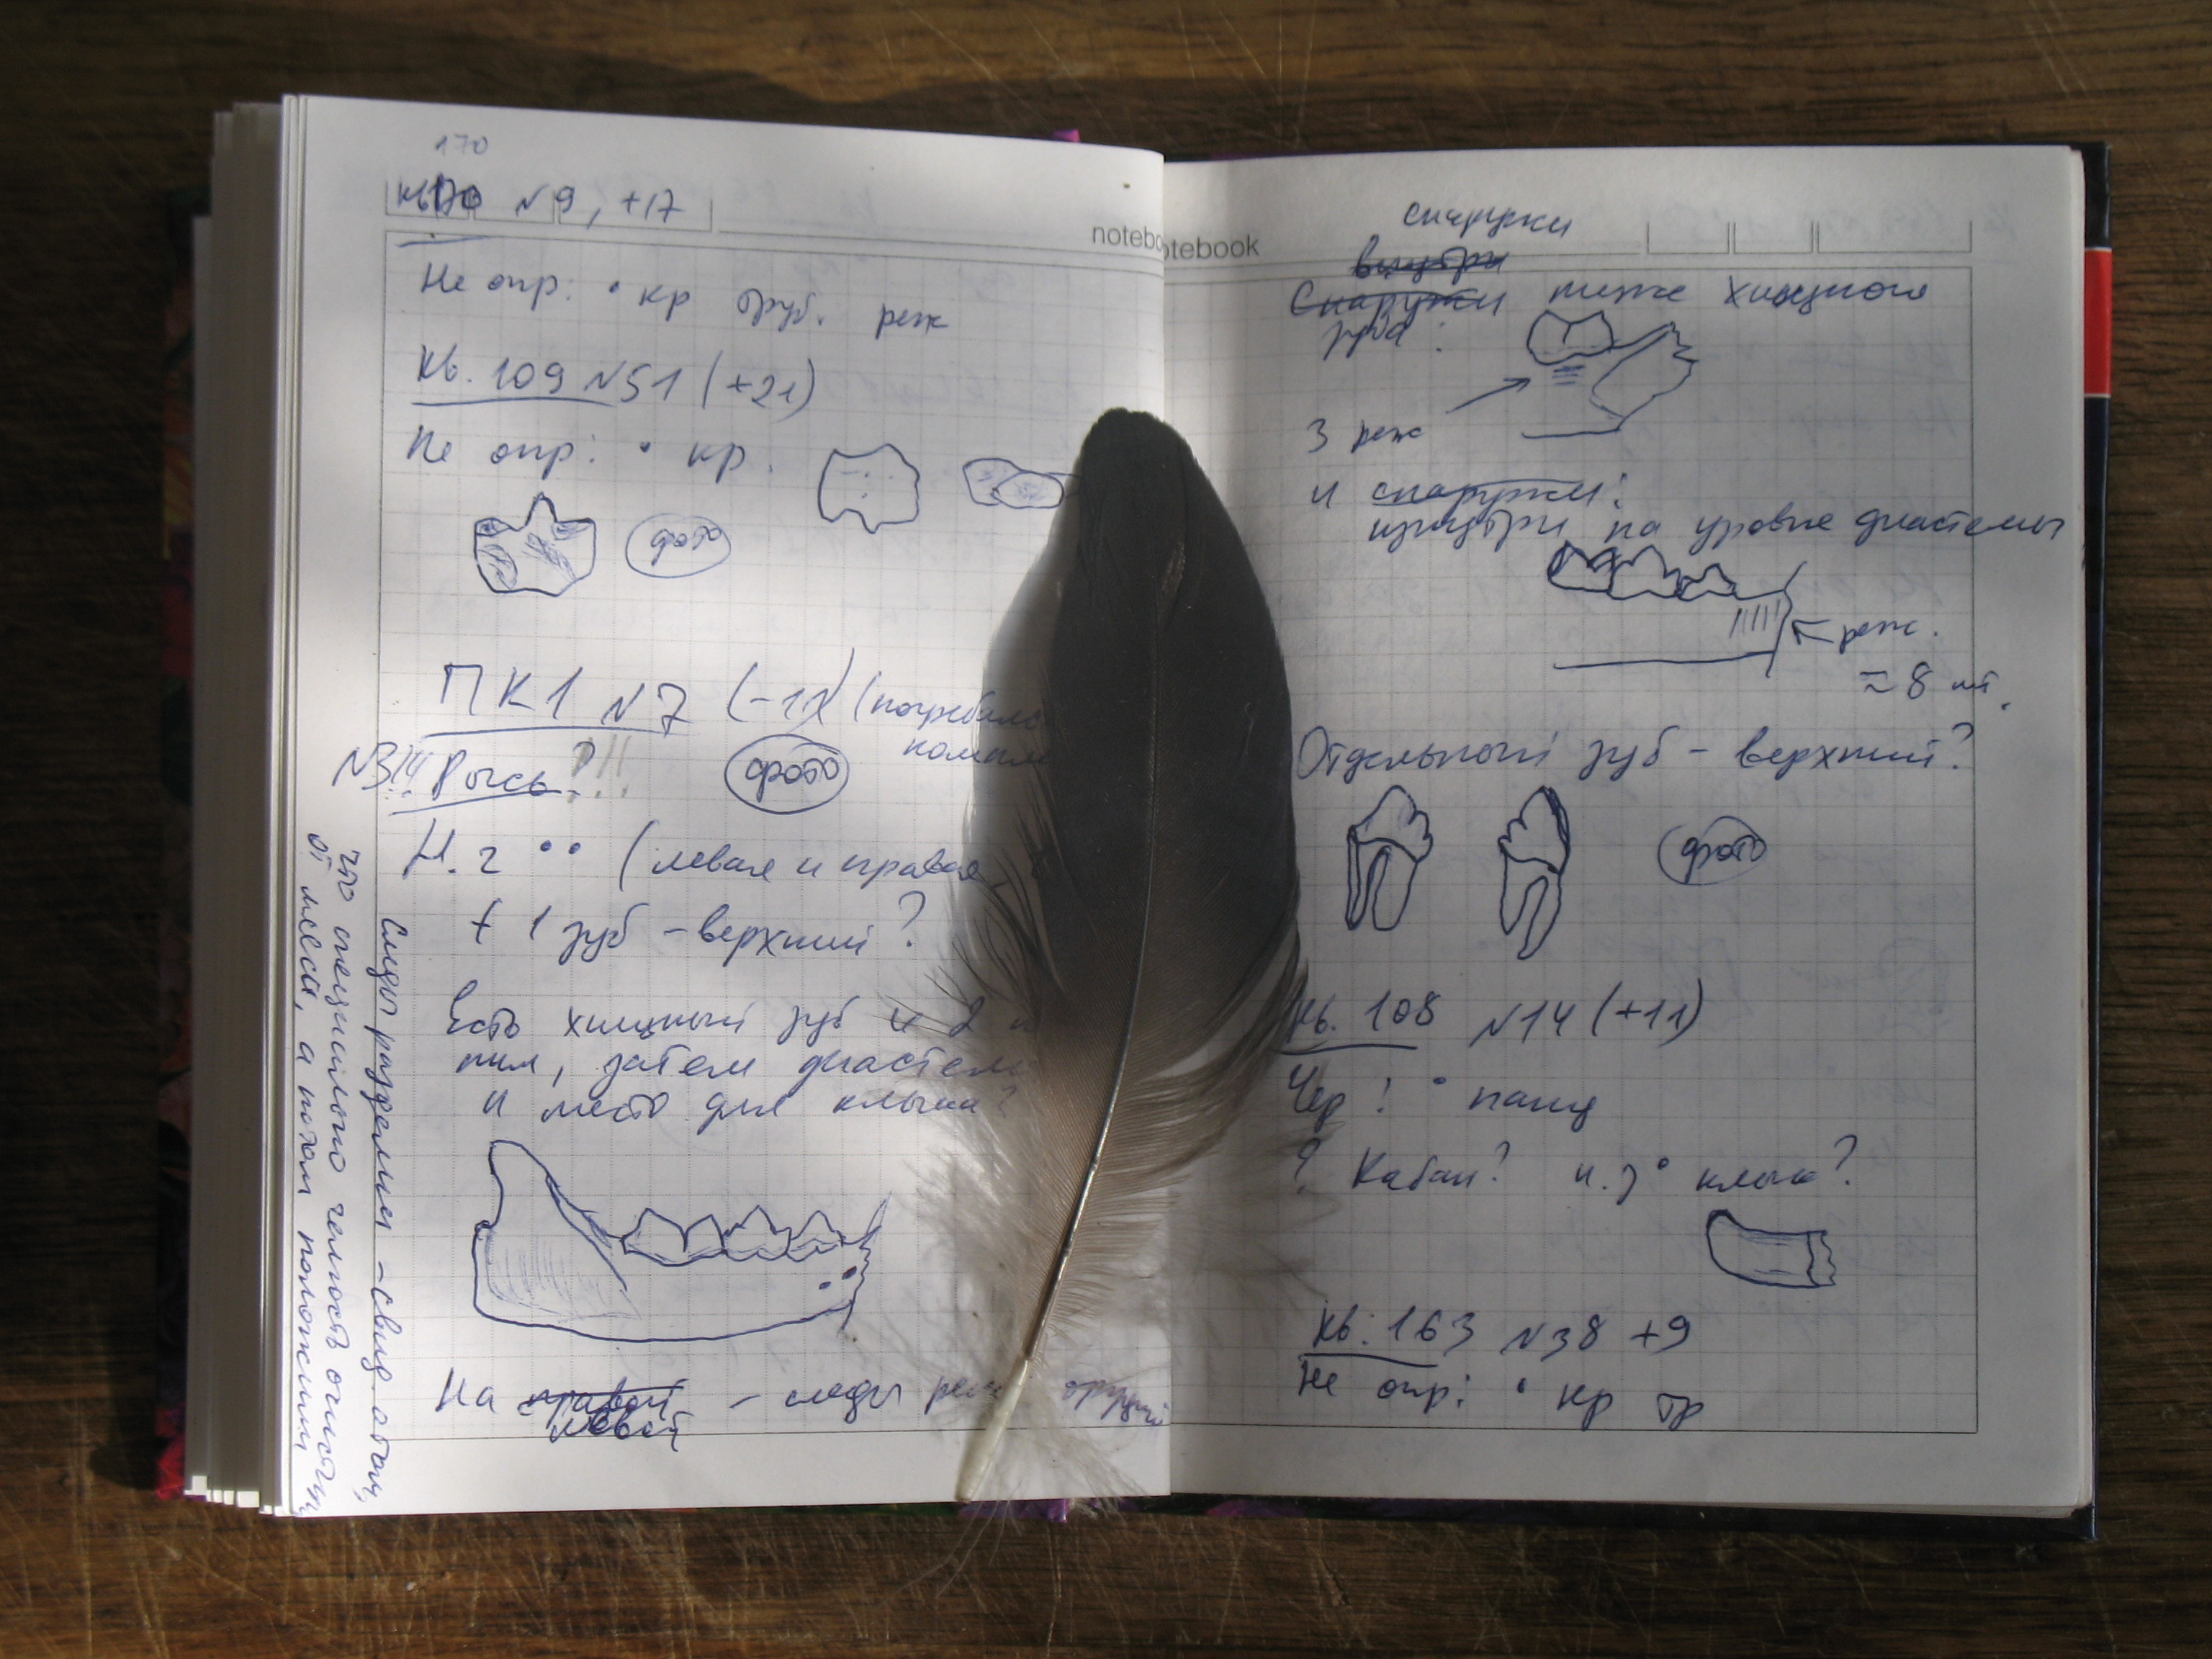 170
кв 170 №9, +17
notebo
Не опр: • кр труб. реж
Кв. 109 №51 (+21)
Не опр: • кр.
фото
ПК1 №7 (-11) (погребальн
компл
№3!4 Рысь?!!!
фото
Н. г •• (левая и правая
+ 1 зуб - верхний?
Есть хищный зуб и 2
пм, затем диастем
и место для клыка?
На правой - следы реж оруди
левой
Следы разделки - свид. о том,
что специально челюсть очистили
от мяса, а потом положили
otebook
снаружи
внутри
Снаружи ниже хищного
зуба:
3 реж
и снаружи:
изнутри на уровне диастемы
реж.
≈ 8 шт.
Отдельный зуб - верхний?
фото
Кв. 108 №14 (+11)
Чер: • панц
? Кабан? н. з • клык?
Кв. 163 №38 +9
Не опр: • кр тр